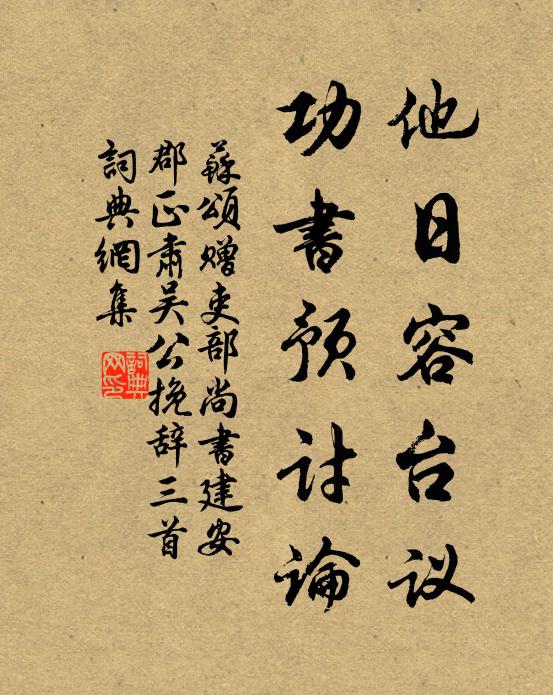 他日容台议
功书预讨论
蘇頌赠吏部尚書建安
郡正肅吴公挽辞三首
詞典網集
詞典网印